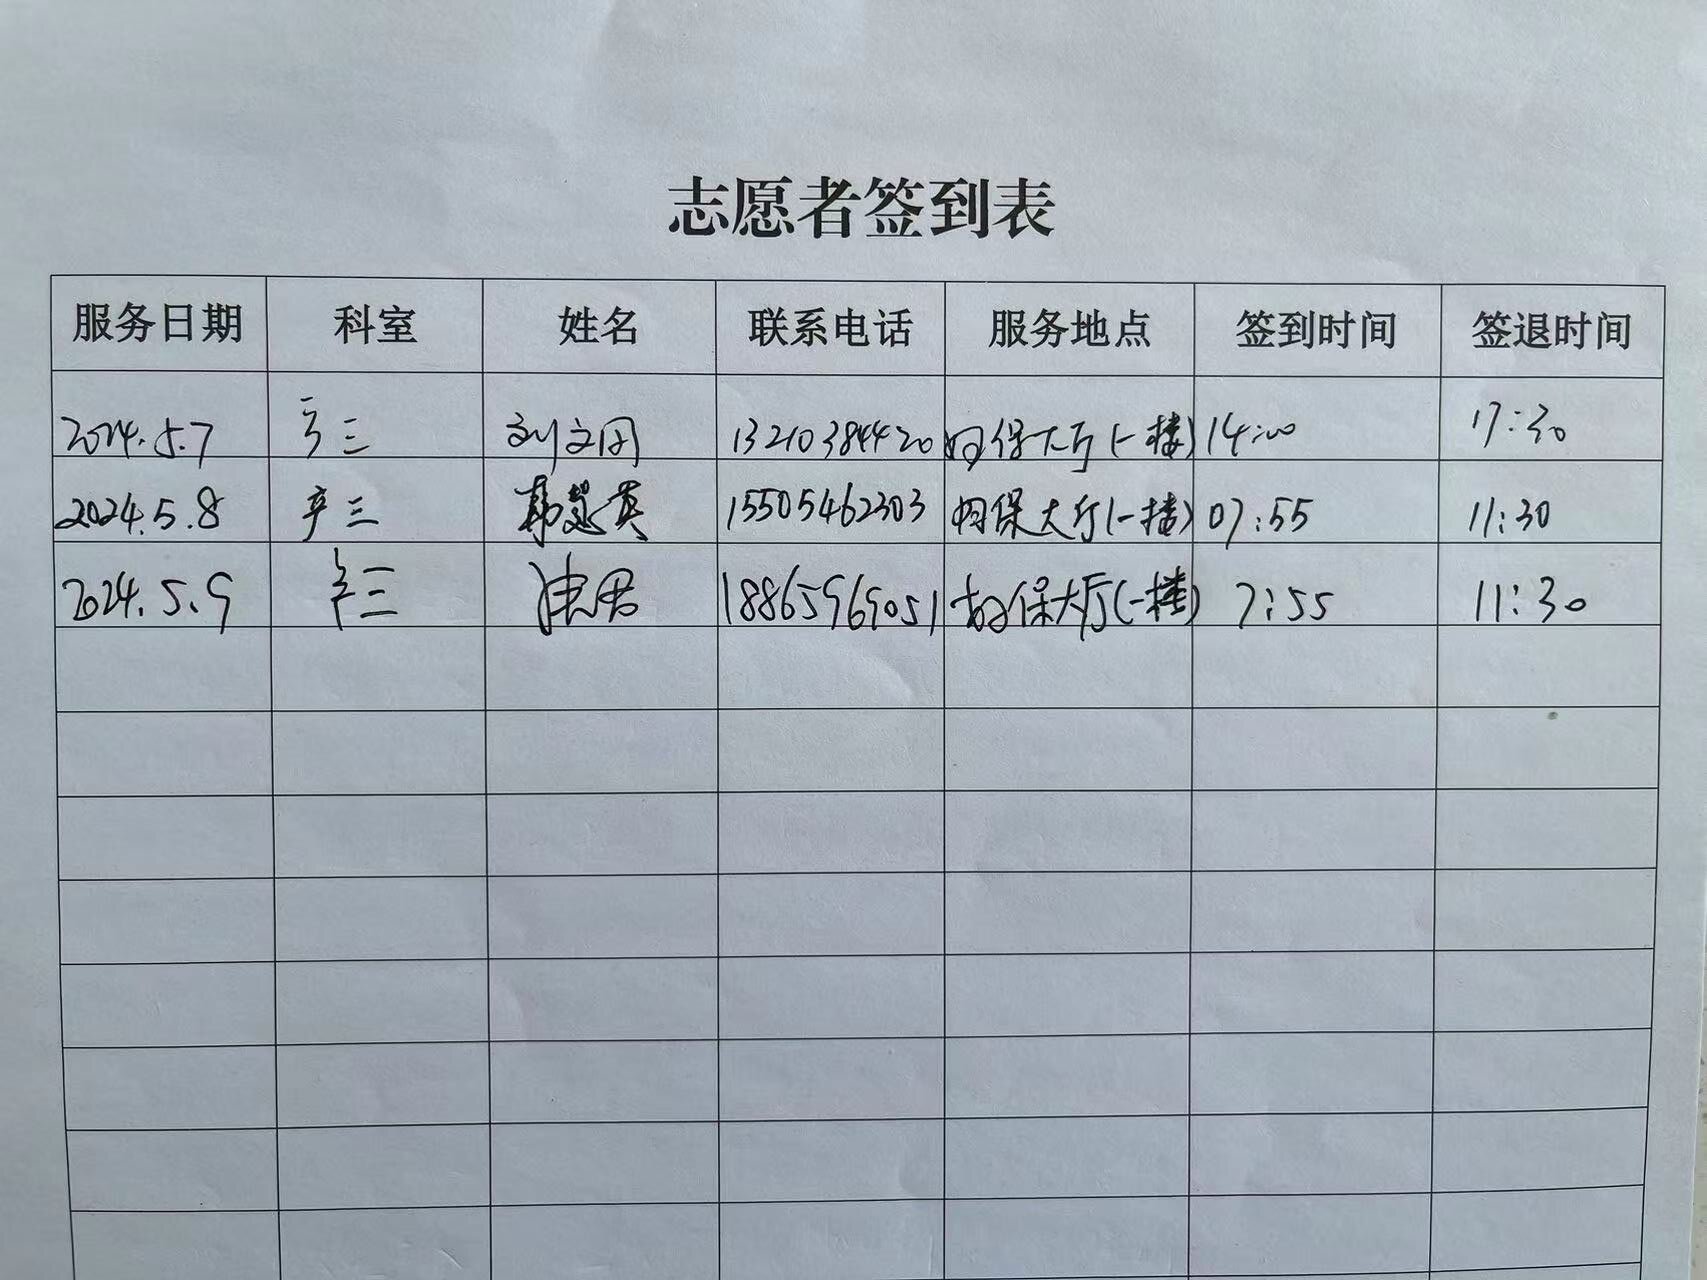 志愿者签到表
服务日期 科室 姓名 联系电话 服务地点 签到时间 签退时间
2024.5.7 产三 刘文 13210384420 妇保大厅(一楼) 14:00 17:30
2024.5.8 产三 韩慧英 15505462303 妇保大厅(一楼) 07:55 11:30
2024.5.9 产三 18865969051 妇保大厅(一楼) 7:55 11:30